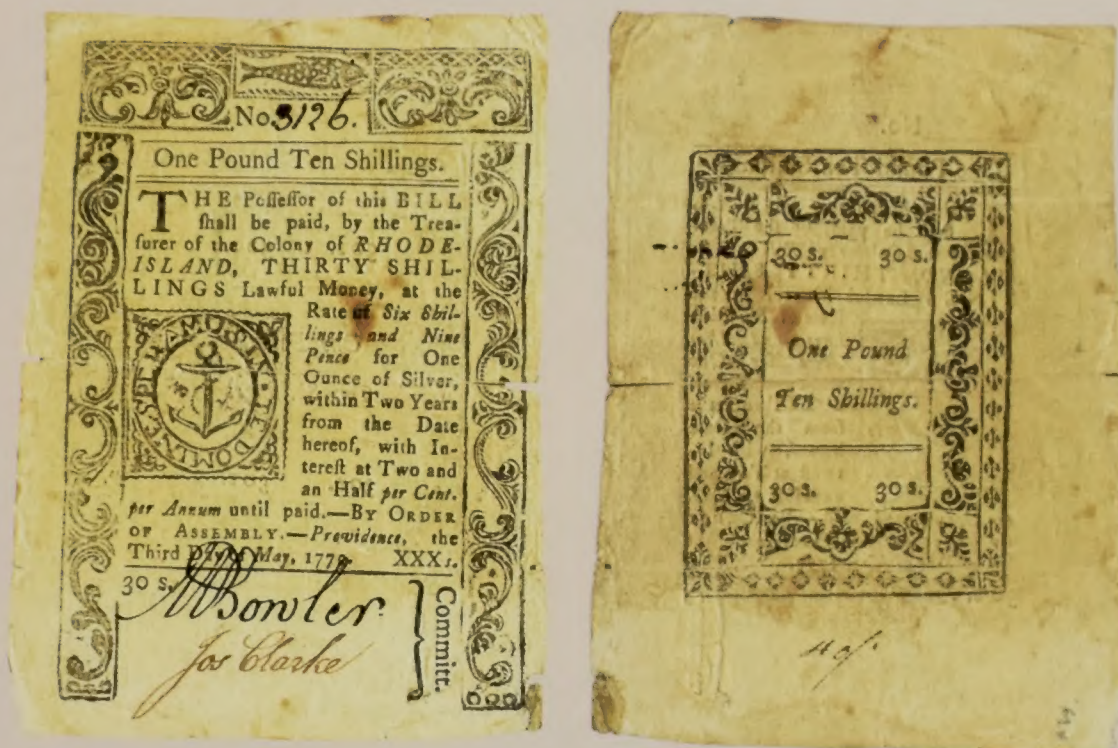 No 3126.
One Pound Ten Shillings.
THE Poſſeſſor of this BILL
ſhall be paid, by the Trea-
ſurer of the Colony of RHODE-
ISLAND, THIRTY SHIL-
LINGS Lawful Money, at the
Rate of Six Shil-
lings and Nine
Pence for One
Ounce of Silver,
within Two Years
from the Date
hereof, with In-
tereſt at Two and
an Half per Cent.
per Annum until paid.—BY ORDER
OF ASSEMBLY.—Providence, the
Third Day May, XXX s.
IN TE DOMINE SPERAMUS
30 s.
M Bowler
Jos Clarke
Committ.
30 s. 30 s.
One Pound
Ten Shillings.
30 s. 30 s.